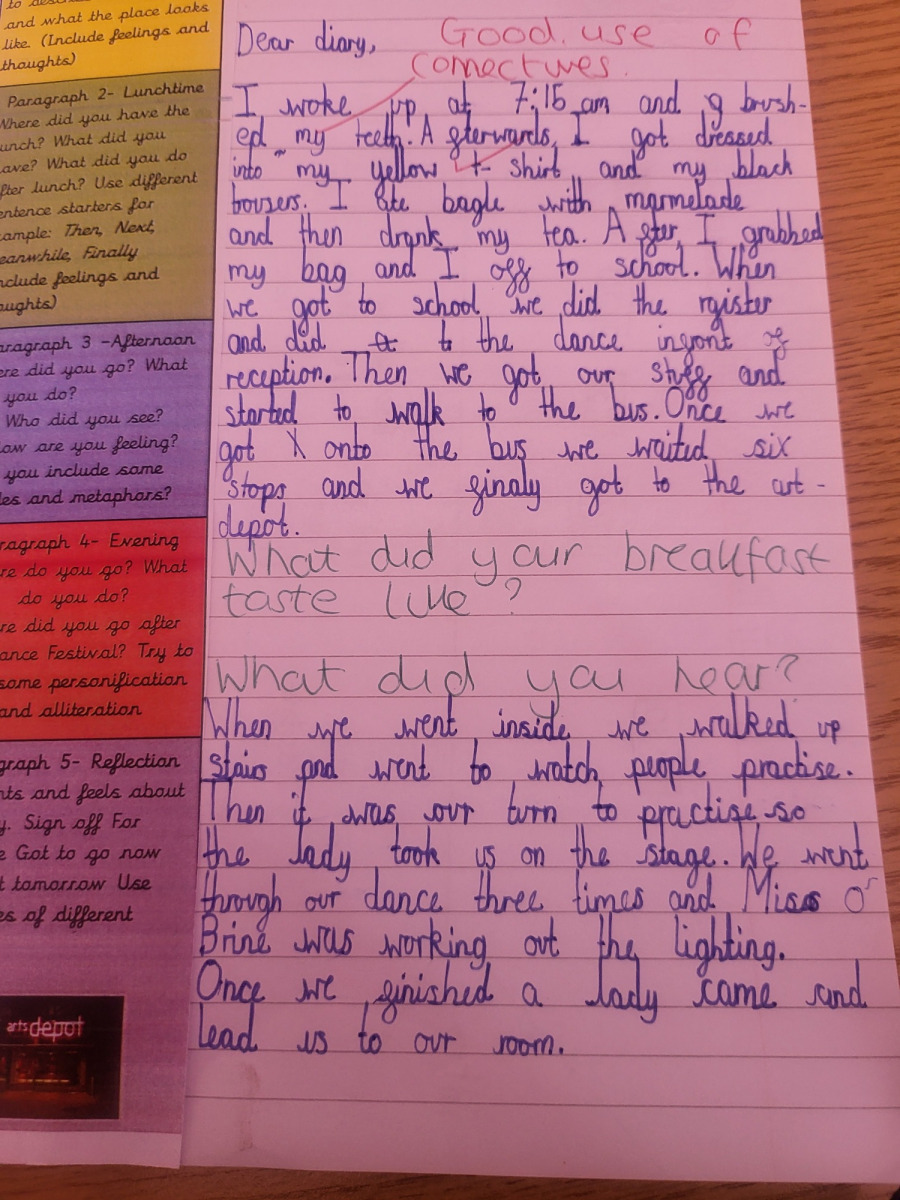 and what the place looks
like. (Include feelings and
thoughts)
Paragraph 2- Lunchtime
Where did you have the
unch? What did you
ave? What did you do
fter lunch? Use different
entence starters for
ample: Then, Next,
eanwhile, Finally
nclude feelings and
oughts)
aragraph 3 -Afternoon
ere did you go? What
you do?
Who did you see?
ow are you feeling?
you include some
les and metaphors?
ragraph 4- Evening
re do you go? What
do you do?
re did you go after
ance Festival? Try to
some personification
and alliteration
graph 5- Reflection
hts and feels about
y. Sign off For
e Got to go now
t tomorrow Use
es of different
arts depot
Dear diary,
Good use of
connectives.
I woke up at 7:15 am and g brush-
ed my teeth. Afterwards, I got dressed
into my yellow t- shirt and my black
tousers. I ate bagle with marmelade
and then drank my tea. After, I grabbed
my bag and I off to school. When
we got to school we did the rgister
and did to the dance infront of
reception. Then we got our stuff and
started to walk to the bus. Once we
got onto the bus we waited six
stops and we finaly got to the art-
depot.
What did your breakfast
taste like?
What did you hear?
When we went inside we walked up
stairs and went to watch people practise.
Then it was our turn to practise so
the lady took us on the stage. We went
through our dance three times and Miss O'
Brine was working out the lighting.
Once we finished a lady came and
lead us to our room.